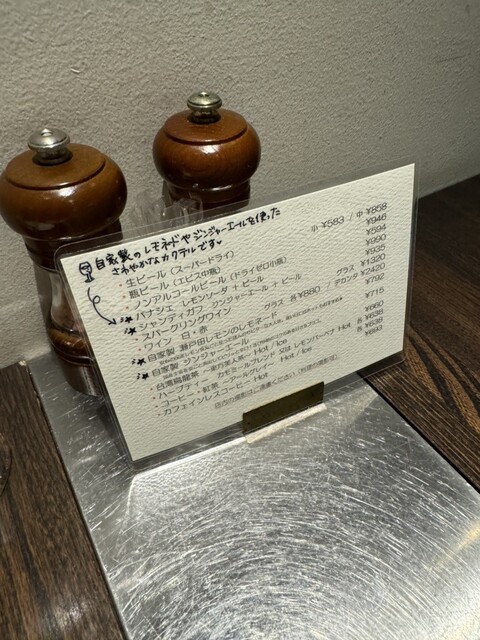 自家製のレモネードやジンジャーエールを使った
さわやかなカクテルです♥
・生ビール (スーパードライ) 小 ¥583 / 中 ¥858
・瓶ビール (エビス中瓶) ¥946
・ノンアルコールビール (ドライゼロ小瓶) ¥594
・パナシェ レモンソーダ + ビール ¥990
・シャンディガフ ジンジャーエール + ビール ¥935
・スパークリングワイン グラス ¥1320
・ワイン 白・赤 グラス 各¥880 / デカンタ ¥2420
・自家製 瀬戸田レモンのレモネード ¥792
・自家製 ジンジャーエール ¥715
・台湾烏龍茶 ー東方美人茶ー Hot / Ice ¥660
・ハーブティー カモミールブレンド 又は レモンバーベナ Hot 各 ¥638
・コーヒー・紅茶 ーアールグレイー Hot / Ice 各 ¥638
・カフェインレスコーヒー Hot ¥693